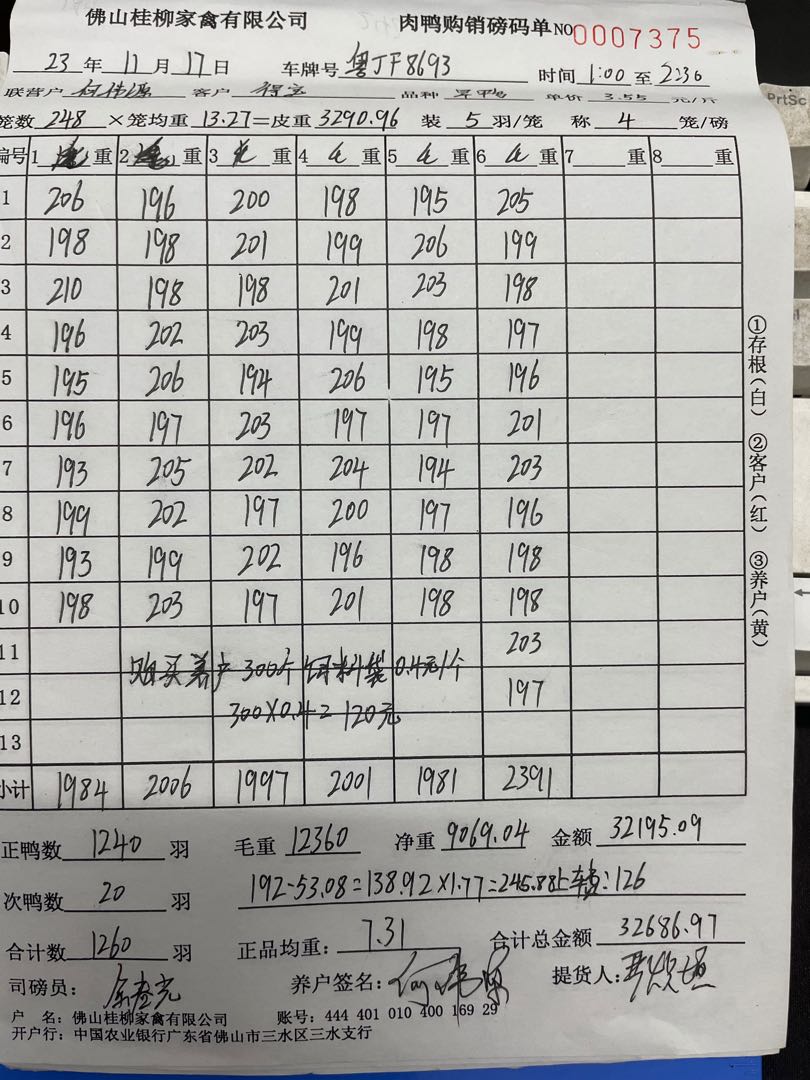 佛山桂柳家禽有限公司 肉鸭购销磅码单 NO 0007375
23年11月17日 车牌号 粤JF8693 时间 1:00 至 2:30
联营户 何伟源 客户 品种 单价 3.55 元/斤
笼数 248 ×笼均重 13.27=皮重 3290.96 装 5 羽/笼 称 4 笼/磅
编号 1 重 2 重 3 毛 重 4 毛 重 5 毛 重 6 毛 重 7 重 8 重
1 206 196 200 198 195 205
2 198 198 201 199 206 199
3 210 198 198 201 203 198
4 196 202 203 199 198 197
5 195 206 194 206 195 196
6 196 197 203 197 197 201
7 193 205 202 204 194 203
8 199 202 197 200 197 196
9 193 199 202 196 198 198
10 198 203 197 201 198 198
11 203
购买养户 300个 饲料袋 0.4元1个
12 197
300×0.4=120元
13
小计 1984 2006 1997 2001 1981 2391
正鸭数 1240 羽 毛重 12360 净重 9069.04 金额 32195.09
次鸭数 20 羽 192-53.08=138.92×1.77=245.88 :126
合计数 1260 羽 正品均重: 7.31 合计总金额 32686.97
司磅员: 养户签名: 何伟源 提货人:
户 名: 佛山桂柳家禽有限公司 账号: 444 401 010 400 169 29
开户行: 中国农业银行广东省佛山市三水区三水支行
①存根(白) ②客户(红) ③养户(黄)
PrtSc